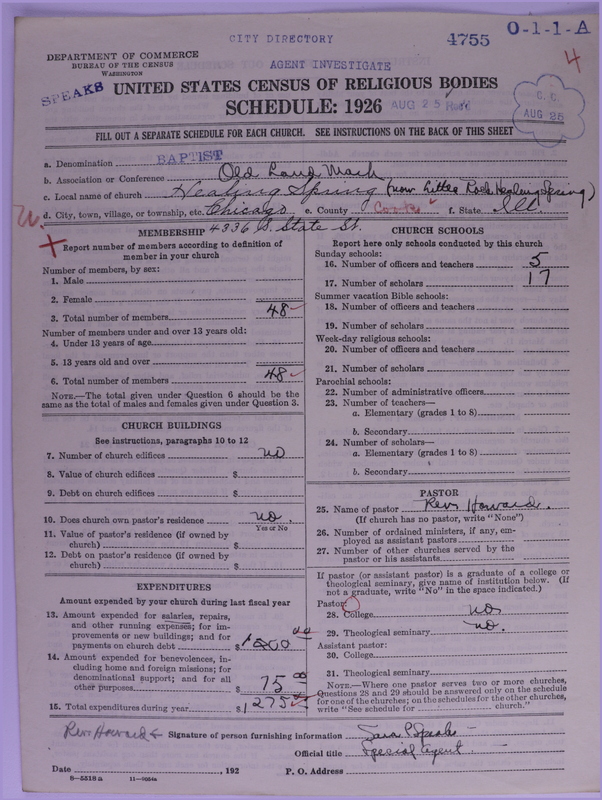 CITY DIRECTORY
4755
O-1-1-A
4
DEPARTMENT OF COMMERCE
BUREAU OF THE CENSUS
WASHINGTON
AGENT INVESTIGATE
SPEAKS
UNITED STATES CENSUS OF RELIGIOUS BODIES
SCHEDULE: 1926
AUG 25
C. C.
AUG 25
FILL OUT A SEPARATE SCHEDULE FOR EACH CHURCH. SEE INSTRUCTIONS ON THE BACK OF THIS SHEET
a. Denomination BAPTIST
b. Association or Conference Old Land Mark
c. Local name of church Healing Spring (now Little Rock Healing Spring)
d. City, town, village, or township, etc. Chicago e. County Cook f. State Ill.
4336 S. State St.
MEMBERSHIP
Report number of members according to definition of member in your church
Number of members, by sex:
1. Male
2. Female
3. Total number of members 48
Number of members under and over 13 years old:
4. Under 13 years of age
5. 13 years old and over
6. Total number of members 48
NOTE.—The total given under Question 6 should be the same as the total of males and females given under Question 3.
CHURCH BUILDINGS
See instructions, paragraphs 10 to 12
7. Number of church edifices no
8. Value of church edifices $
9. Debt on church edifices $
10. Does church own pastor's residence no.
Yes or No
11. Value of pastor's residence (if owned by church) $
12. Debt on pastor's residence (if owned by church) $
EXPENDITURES
Amount expended by your church during last fiscal year
13. Amount expended for salaries, repairs, and other running expenses; for improvements or new buildings; and for payments on church debt $ 1200 00
14. Amount expended for benevolences, including home and foreign missions; for denominational support; and for all other purposes $ 75 00
15. Total expenditures during year $ 1275 00
CHURCH SCHOOLS
Report here only schools conducted by this church
Sunday schools:
16. Number of officers and teachers 5
17. Number of scholars 17
Summer vacation Bible schools:
18. Number of officers and teachers
19. Number of scholars
Week-day religious schools:
20. Number of officers and teachers
21. Number of scholars
Parochial schools:
22. Number of administrative officers
23. Number of teachers—
a. Elementary (grades 1 to 8)
b. Secondary
24. Number of scholars—
a. Elementary (grades 1 to 8)
b. Secondary
PASTOR
25. Name of pastor Rev. Howard.
(If church has no pastor, write "None")
26. Number of ordained ministers, if any, employed as assistant pastors
27. Number of other churches served by the pastor or his assistants
If pastor (or assistant pastor) is a graduate of a college or theological seminary, give name of institution below. (If not a graduate, write "No" in the space indicated.)
Pastor:
28. College no
29. Theological seminary no.
Assistant pastor:
30. College
31. Theological seminary
NOTE.—Where one pastor serves two or more churches, Questions 28 and 29 should be answered only on the schedule for one of the churches; on the schedules for the other churches, write "See schedule for church."
Rev Howard Signature of person furnishing information Sara P. Speaks
Official title Special Agent
Date , 192 P. O. Address
8—5518a 11—9054a